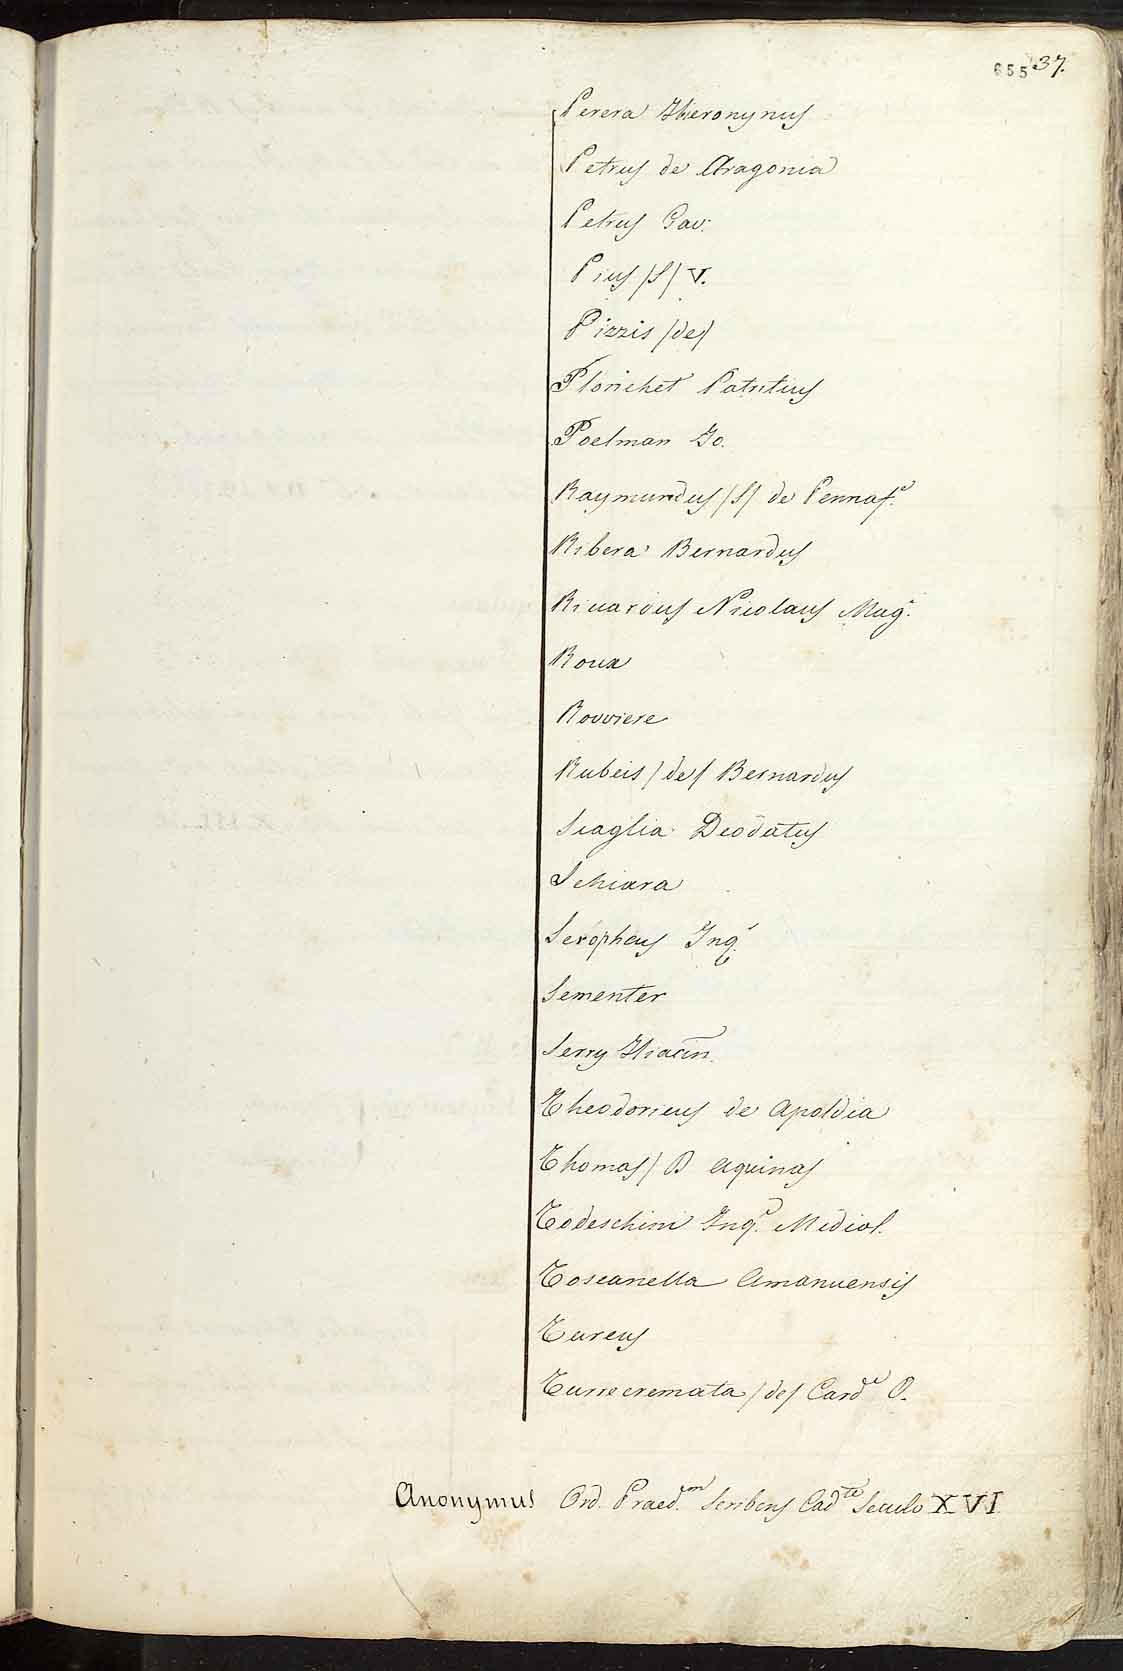 655 37.
Perera Hieronynus
Petrus de Aragonia
Petrus Gav:
Pius /S/ V.
Pizzis /de/
Plonichet Patritius
Poelman Jo.
Raymundus /S/ de Pennafe.
Ribera Bernardus
Ricardus Nicolaus Mag.
Roux
Rovviere
Rubeis /de/ Bernardus
Scaglia Deodatus
Schiara
Seropheus Inq.
Sementer
Serry Hiacin.
Theodoricus de Apoldia
Thomas / D Aquinas
Todeschini Inqe. Mediol.
Toscanella Amanuensis
Tureus
Turrecremata /de/ Carde O.
Anonymus Ord. Praed.m Scribens Cadte Seculo XVI